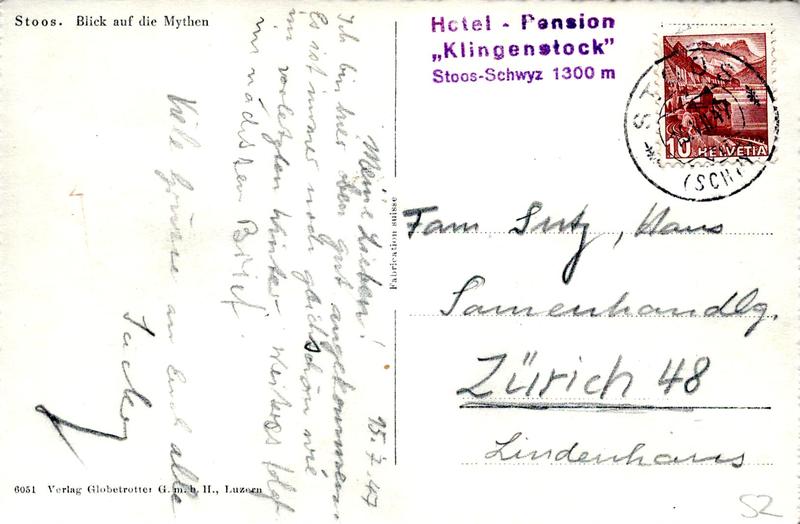 Stoos. Blick auf die Mythen
Meine Lieben! 15.7.47
Ich bin hier oben gut angekommen.
Es ist immer noch gleich schön wie
im vorletzten Winter. Weiteres folgt
im nächsten Brief.
Viele Grüsse an Euch alle
Hotel - Pension
„Klingenstock"
Stoos-Schwyz 1300 m
STOOS
(SCHWYZ)
10 HELVETIA
Fabrication suisse
Fam Sutz, Hans
Samenhandlg.
Zürich 48
Lindenhaus
6051 Verlag Globetrotter G. m. b. H., Luzern
52